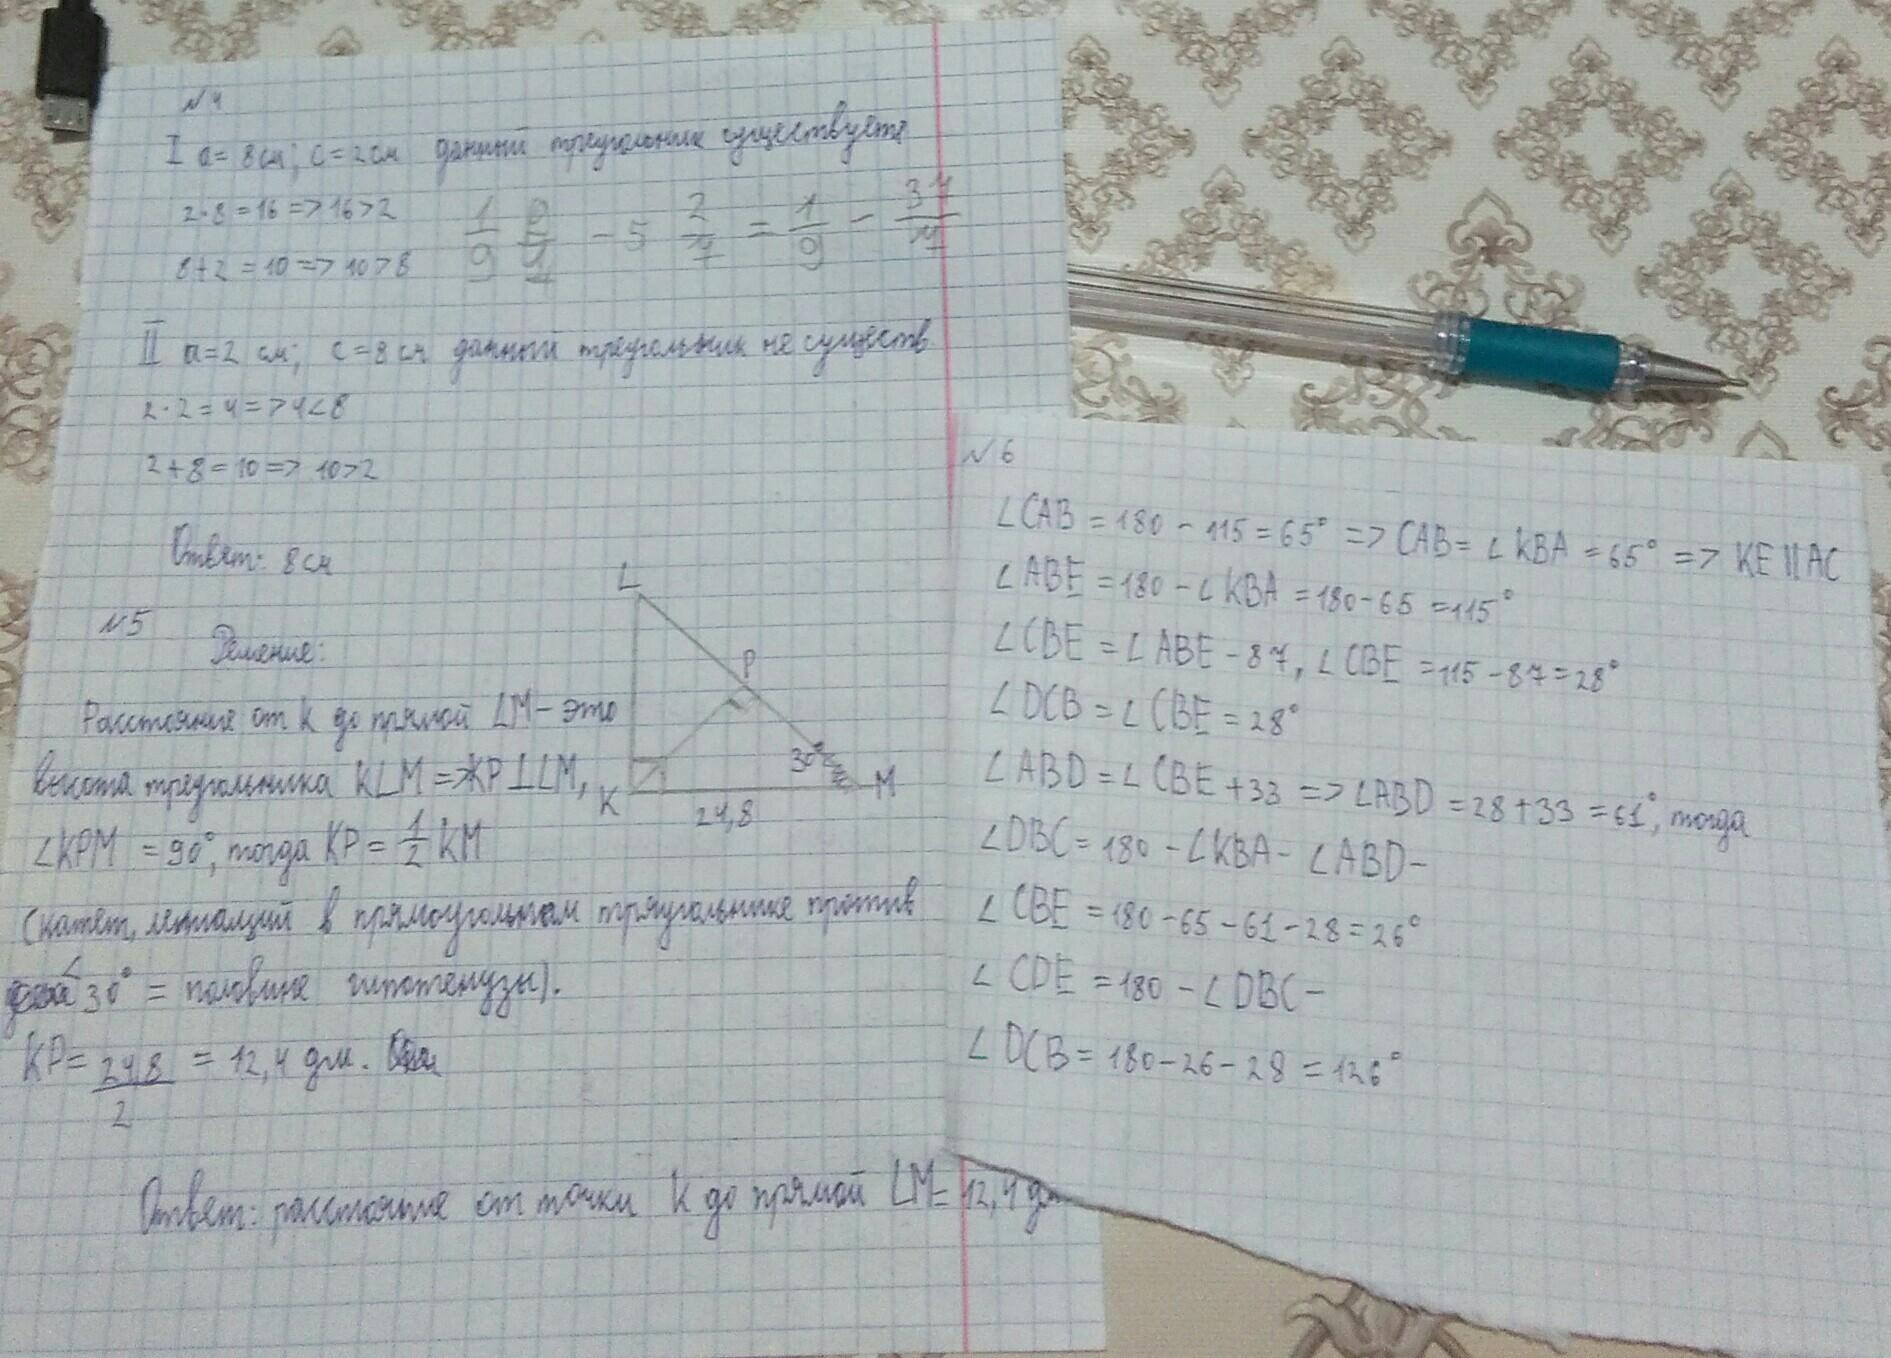 №4
I a = 8 см; c = 2 см данный треугольник существуете
2·8 = 16 => 16>2
8+2 = 10 => 10>8
1/9 - 5 2/7 = 1/9 - 37/7
II a = 2 см; c = 8 см данный треугольник не существ
2·2 = 4 => 4<8
2+8 = 10 => 10>2
Ответ: 8 см
№5
Решение:
Расстояние от K до прямой LM - это
высота треугольника KLM => KP⊥LM,
∠KPM = 90°, тогда KP = 1/2 KM
(катет, лежащий в прямоугольном треугольнике против
∠ 30° = половине гипотенузы).
KP = 24,8/2 = 12,4 дм.
Ответ: расстояние от точки K до прямой LM = 12,4 дм
L
P
30°
K
M
24,8
№6
∠CAB = 180 - 115 = 65° => CAB = ∠KBA = 65° => KE || AC
∠ABE = 180 - ∠KBA = 180 - 65 = 115°
∠CBE = ∠ABE - 87, ∠CBE = 115 - 87 = 28°
∠DCB = ∠CBE = 28°
∠ABD = ∠CBE + 33 => ∠ABD = 28 + 33 = 61°, тогда
∠DBC = 180 - ∠KBA - ∠ABD -
∠CBE = 180 - 65 - 61 - 28 = 26°
∠CDE = 180 - ∠DBC -
∠DCB = 180 - 26 - 28 = 126°